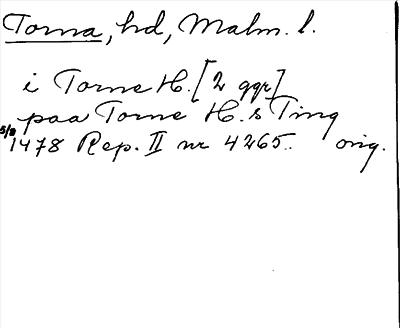 Torna, hd, Malm. l.
i Torne H. [2 ggr]
paa Torne H.s Ting
5/8 1478 Rep. II nr 4265. orig.